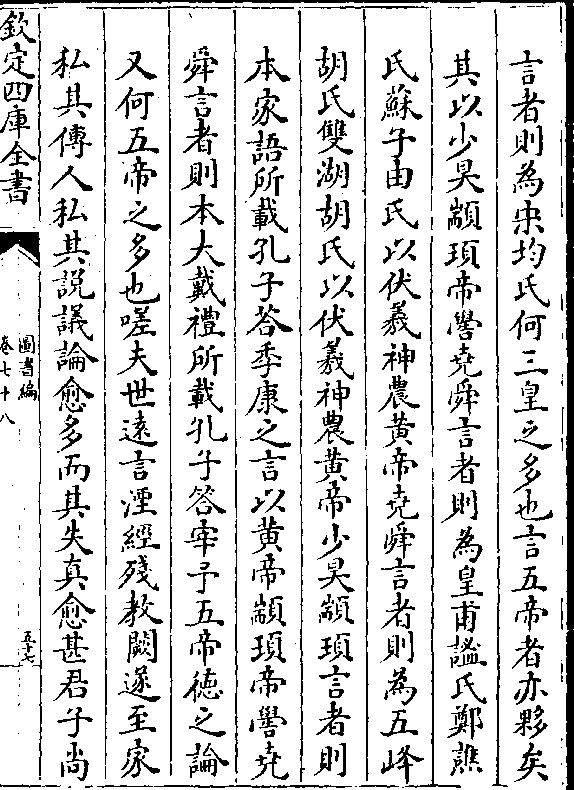 言者則為宋均氏何三皇之多也言五帝者亦夥矣
其以少昊顓頊帝嚳堯舜言者則為皇甫謐氏鄭譙
氏蘇子由氏以伏羲神農黃帝堯舜言者則為五峰
胡氏雙湖胡氏以伏羲神農黃帝少昊顓頊言者則
本家語所載孔子答季康之言以黃帝顓頊帝嚳堯
舜言者則本大戴禮所載孔子答宰予五帝德之論
又何五帝之多也嗟夫世遠言湮經殘教闕遂至家
私其傳人私其説議論愈多而其失真愈甚君子尚
欽定四庫全書
圖書編
卷七十八
五十七